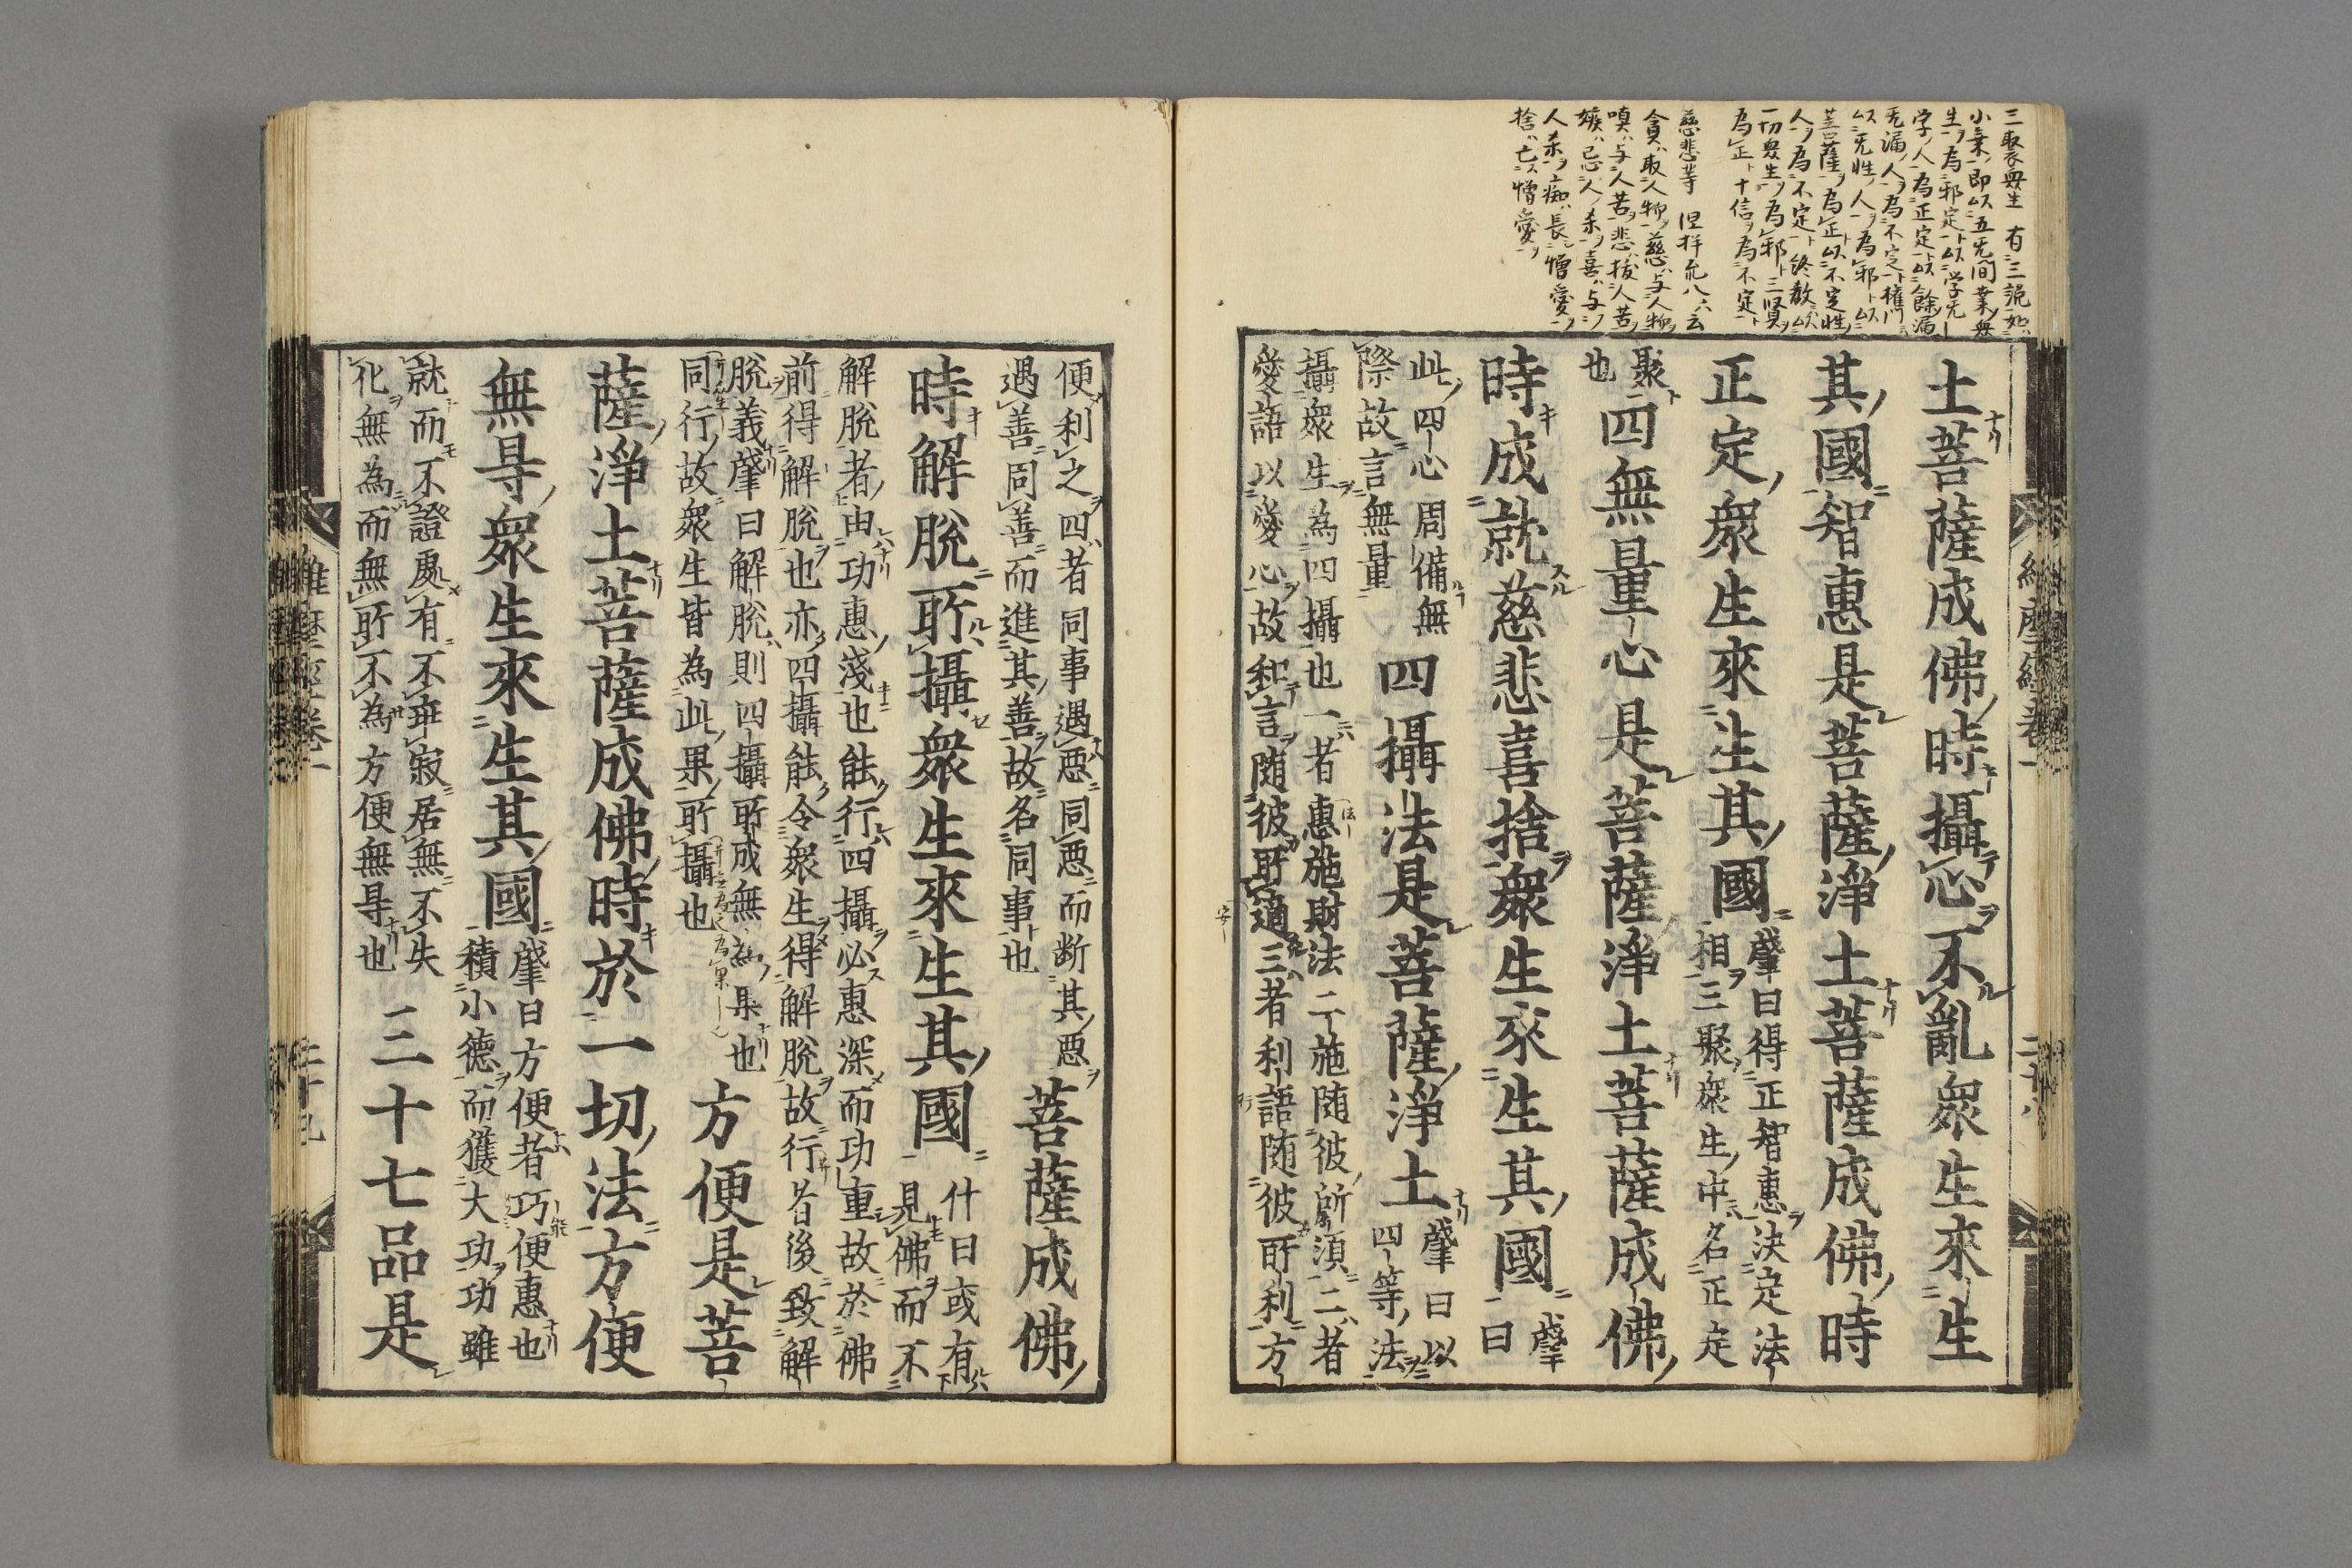 三聚衆生 有三説如
小乗即以五无間業衆
生為邪定以学无
学人為正定以餘漏
无漏人為不定権门
以无性人為邪以
菩薩為正以不定性
人為不定終教以
一切衆生為邪三賢
為正十信為不定
慈悲等 涅槃疏八云
貪取人物慈与人物
嗔与人苦悲抜人苦
嫉忌人楽喜与
人楽痴長憎愛
捨亡憎愛
土菩薩成佛時攝心不亂衆生來生
其國智惠是菩薩淨土菩薩成佛時
正定衆生來生其國
肇曰得正智惠決定法
相三聚衆生中名正定
聚
也
四無量心是菩薩淨土菩薩成佛
時成就慈悲喜捨衆生來生其國
肇
曰
此四心周備無
際故言無量
四攝法是菩薩淨土
肇曰以
四等法
攝衆生為四攝也一者惠施財法二施随彼所須二者
愛語以愛心故和言随彼所適三者利語随彼所利方
維摩經卷一 二十八
便利之四者同事遇悪同悪而断其悪
遇善同善而進其善故名同事也
菩薩成佛
時解脱所攝衆生來生其國
什曰或有
見佛而不
解脱者由功惠淺也能行四攝必惠深而功重故於佛
前得解脱也亦四攝能令衆生得解脱故行者後致解
脱義肇曰解脱則四攝所成無為果也
同行故衆生皆為此果所攝也
方便是菩
薩淨土菩薩成佛時於一切法方便
無㝵衆生來生其國
肇曰方便者巧便惠也
積小德而獲大功功雖
就而不證處有不乖寂居無不失
化無為而無所不為方便無㝵也
三十七品是
維摩經卷一 二十九